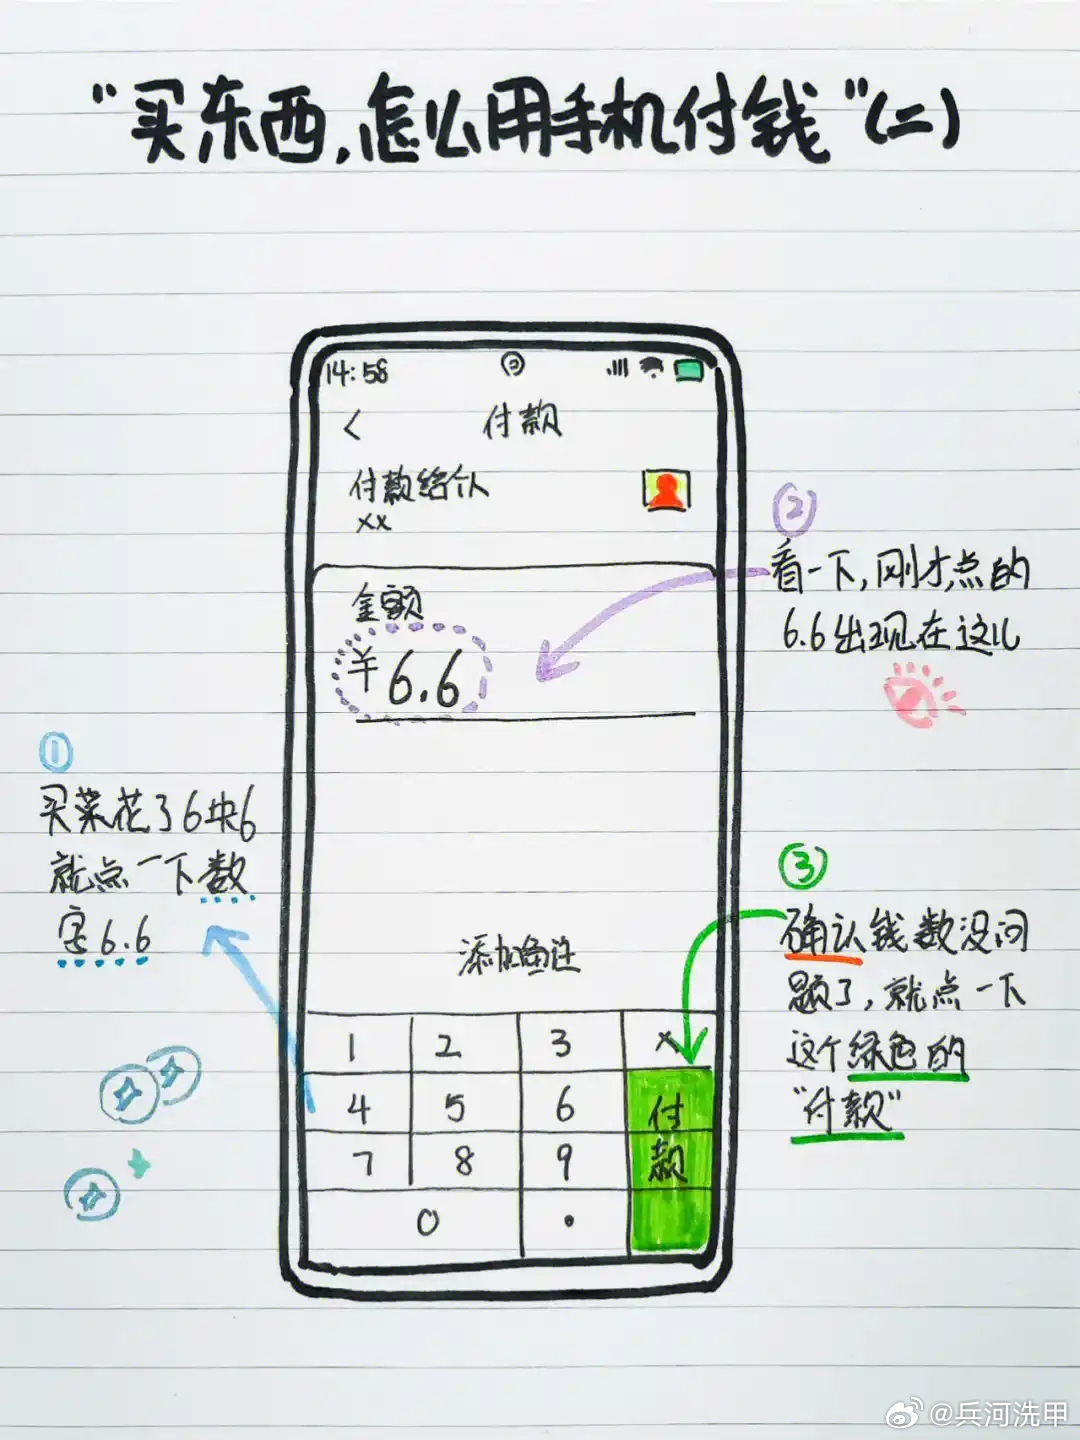 "买东西,怎么用手机付钱"(二)
14:58
付款
付款给个人
xx
金额
¥6.6
添加备注
1 2 3 x
4 5 6
7 8 9
0 .
付
款
①
买菜花了6块6
就点一下数
字6.6
②
看一下,刚才点的
6.6出现在这儿
③
确认钱数没问
题了,就点一下
这个绿色的
"付款"
@兵河洗甲